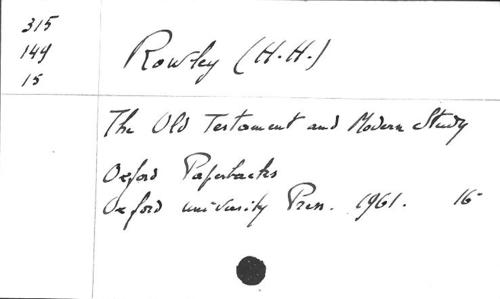 315
149
15
Rowley (H.H.)
The Old Testament and Modern Study
Oxford Paperbacks
Oxford university Press. 1961. 16